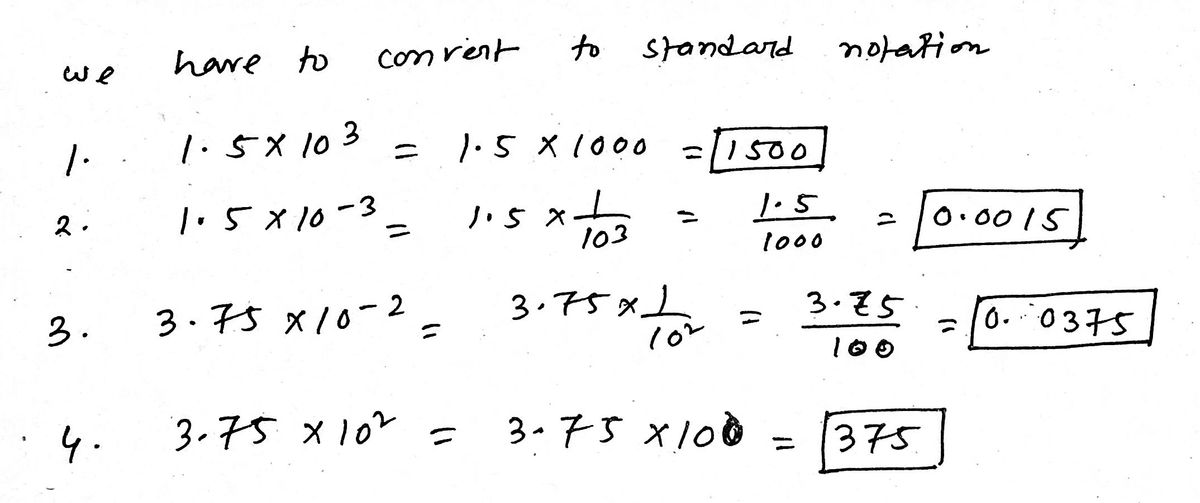 we have to convert to standard notation
1. 1.5 × 10³ = 1.5 × 1000 = 1500
2. 1.5 × 10⁻³ = 1.5 × 1/103 = 1.5/1000 = 0.0015
3. 3.75 × 10⁻² = 3.75 × 1/10² = 3.75/100 = 0.0375
4. 3.75 × 10² = 3.75 × 100 = 375